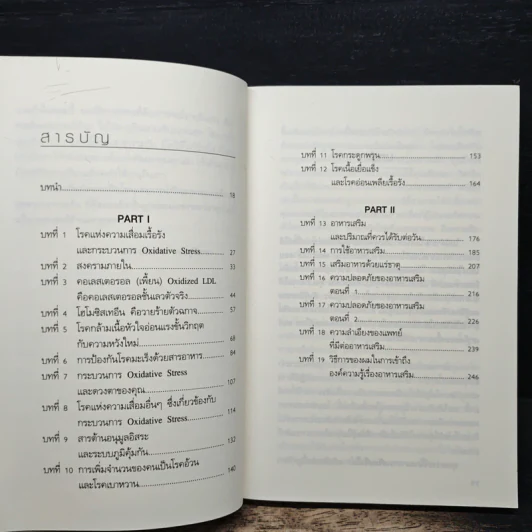 สารบัญ
บทนำ 18
PART I
บทที่ 1 โรคแห่งความเสื่อมเรื้อรัง
และกระบวนการ Oxidative Stress 21
บทที่ 2 สงครามภายใน 33
บทที่ 3 คอเลสเตอรอล (เพี้ยน) Oxidized LDL
คือคอเลสเตอรอลชั้นเลวตัวจริง 44
บทที่ 4 โฮโมซิสเทอีน คือวายร้ายตัวฉกาจ 57
บทที่ 5 โรคกล้ามเนื้อหัวใจอ่อนแรงขั้นวิกฤต
กับความหวังใหม่ 68
บทที่ 6 การป้องกันโรคมะเร็งด้วยสารอาหาร 84
บทที่ 7 กระบวนการ Oxidative Stress
และดวงตาของคุณ 107
บทที่ 8 โรคแห่งความเสื่อมอื่นๆ ซึ่งเกี่ยวข้องกับ
กระบวนการ Oxidative Stress 114
บทที่ 9 สารต้านอนุมูลอิสระ
และระบบภูมิคุ้มกัน 132
บทที่ 10 การเพิ่มจำนวนของคนเป็นโรคอ้วน
และโรคเบาหวาน 140
บทที่ 11 โรคกระดูกพรุน 153
บทที่ 12 โรคเนื้อเยื่อแข็ง
และโรคอ่อนเพลียเรื้อรัง 164
PART II
บทที่ 13 อาหารเสริม
และปริมาณที่ควรได้รับต่อวัน 176
บทที่ 14 การใช้อาหารเสริม 185
บทที่ 15 เสริมอาหารด้วยแร่ธาตุ 207
บทที่ 16 ความปลอดภัยของอาหารเสริม
ตอนที่ 1 216
บทที่ 17 ความปลอดภัยของอาหารเสริม
ตอนที่ 2 226
บทที่ 18 ความลำเอียงของแพทย์
ที่มีต่ออาหารเสริม 239
บทที่ 19 วิธีการของผมในการเข้าถึง
องค์ความรู้เรื่องอาหารเสริม 246